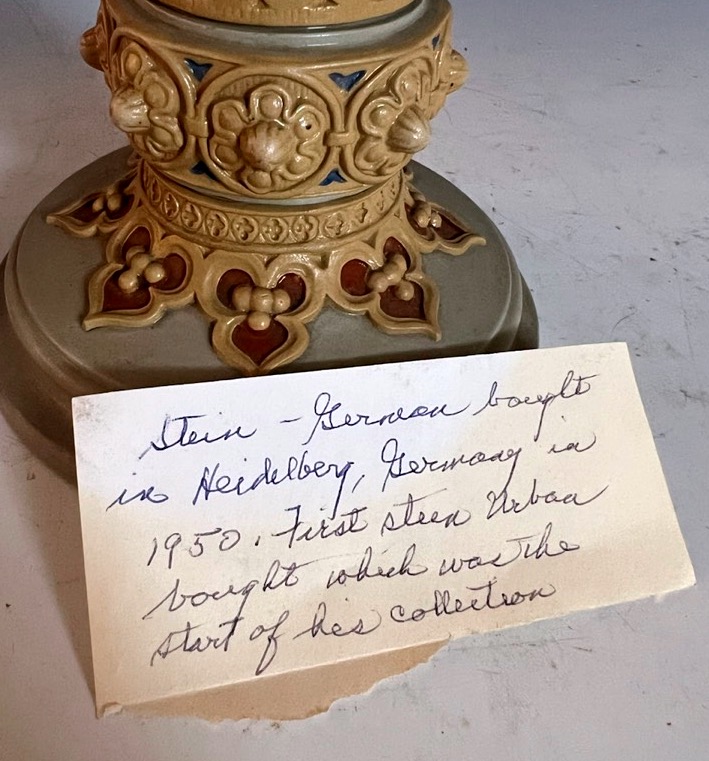 Stein - German bought
in Heidelberg, Germany in
1950. First steen Urban
bought which was the
start of his collection